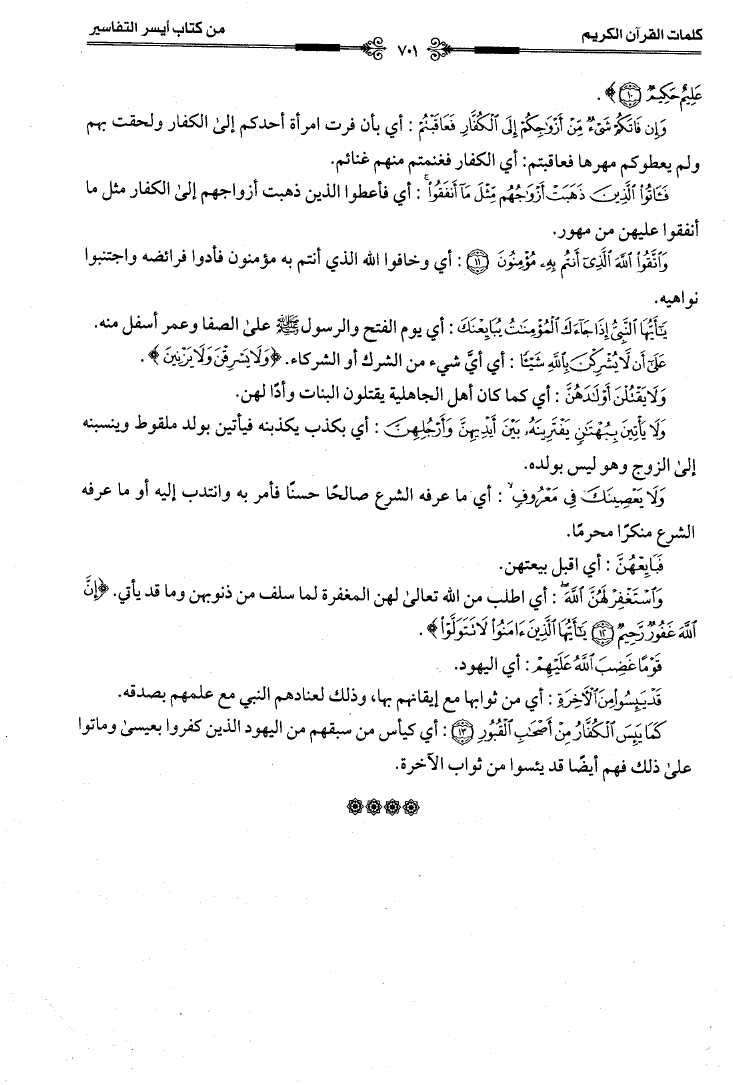 كلمات القرآن الكريم
٧٠١
من كتاب أيسر التفاسير
عَلِيمٌ حَكِيمٌ ۝١٠﴾.
وَإِن فَاتَكُمْ شَىْءٌ مِّنْ أَزْوَٰجِكُمْ إِلَى ٱلْكُفَّارِ فَعَاقَبْتُمْ : أي بأن فرت امرأة أحدكم إلىٰ الكفار ولحقت بهم
ولم يعطوكم مهرها فعاقبتم: أي الكفار فغنمتم منهم غنائم.
فَـَٔاتُوا۟ ٱلَّذِينَ ذَهَبَتْ أَزْوَٰجُهُم مِّثْلَ مَآ أَنفَقُوا۟ ۚ : أي فأعطوا الذين ذهبت أزواجهم إلىٰ الكفار مثل ما
أنفقوا عليهن من مهور.
وَٱتَّقُوا۟ ٱللَّهَ ٱلَّذِىٓ أَنتُم بِهِۦ مُؤْمِنُونَ ۝١١ : أي وخافوا الله الذي أنتم به مؤمنون فأدوا فرائضه واجتنبوا
نواهيه.
يَـٰٓأَيُّهَا ٱلنَّبِىُّ إِذَا جَآءَكَ ٱلْمُؤْمِنَـٰتُ يُبَايِعْنَكَ : أي يوم الفتح والرسول ﷺ علىٰ الصفا وعمر أسفل منه.
عَلَىٰٓ أَن لَّا يُشْرِكْنَ بِٱللَّهِ شَيْـًٔا : أي أيَّ شيء من الشرك أو الشركاء. ﴿وَلَا يَسْرِقْنَ وَلَا يَزْنِينَ﴾.
وَلَا يَقْتُلْنَ أَوْلَـٰدَهُنَّ : أي كما كان أهل الجاهلية يقتلون البنات وأدًا لهن.
وَلَا يَأْتِينَ بِبُهْتَـٰنٍ يَفْتَرِينَهُۥ بَيْنَ أَيْدِيهِنَّ وَأَرْجُلِهِنَّ : أي بكذب يكذبنه فيأتين بولد ملقوط وينسبنه
إلىٰ الزوج وهو ليس بولده.
وَلَا يَعْصِينَكَ فِى مَعْرُوفٍ ۙ : أي ما عرفه الشرع صالحًا حسنًا فأمر به وانتدب إليه أو ما عرفه
الشرع منكرًا محرمًا.
فَبَايِعْهُنَّ : أي اقبل بيعتهن.
وَٱسْتَغْفِرْ لَهُنَّ ٱللَّهَ ۖ : أي اطلب من الله تعالىٰ لهن المغفرة لما سلف من ذنوبهن وما قد يأتي. ﴿إِنَّ
ٱللَّهَ غَفُورٌ رَّحِيمٌ ۝١٢ يَـٰٓأَيُّهَا ٱلَّذِينَ ءَامَنُوا۟ لَا تَتَوَلَّوْا۟﴾.
قَوْمًا غَضِبَ ٱللَّهُ عَلَيْهِمْ : أي اليهود.
قَدْ يَئِسُوا۟ مِنَ ٱلْـَٔاخِرَةِ : أي من ثوابها مع إيقانهم بها، وذلك لعنادهم النبي مع علمهم بصدقه.
كَمَا يَئِسَ ٱلْكُفَّارُ مِنْ أَصْحَـٰبِ ٱلْقُبُورِ ۝١٣ : أي كيأس من سبقهم من اليهود الذين كفروا بعيسىٰ وماتوا
علىٰ ذلك فهم أيضًا قد يئسوا من ثواب الآخرة.